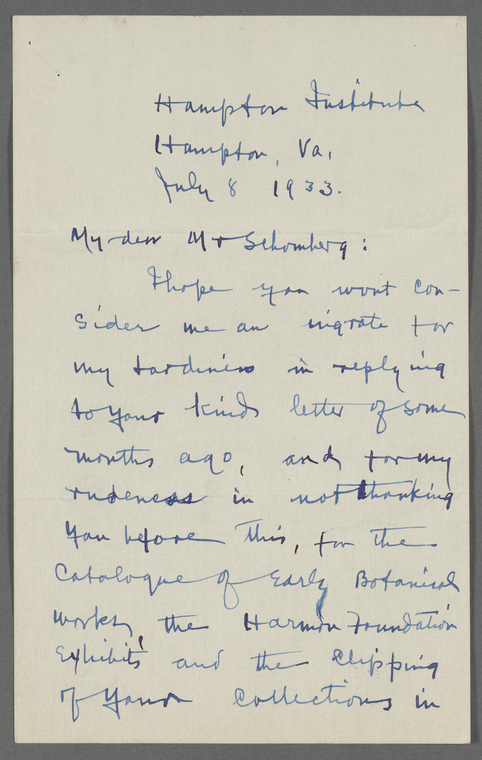 Hampton Institute
Hampton, Va.
July 8 1933.
My dear Mr Schomberg:
I hope you wont con-
sider me an ingrate for
my tardiness in replying
to your kind letter of some
months ago, and for my
rudeness in not thanking
you before this, for the
Catalogue of Early Botanical
works, the Harmon Foundation
Exhibits and the Clipping
of your Collections in